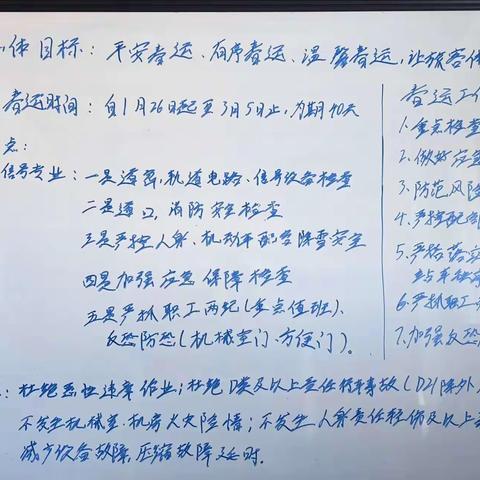 体目标：平安春运、有序春运、温馨春运，让旅客体
春运时间：自1月26日起至3月5日止，为期40天
点：
信号专业：一是道岔、轨道电路、信号设备检查
二是道口、消防安全检查
三是严控人身、机动车配合除雪安全
四是加强应急保障检查
五是严抓职工两纪（重点值班）、
反恐防恐（机械室门、方便门）。
：杜绝恶性违章作业；杜绝D类及以上责任行车事故（D21除外）
不发生机械室、机房火灾险情；不发生人身责任轻伤及以上
减少设备故障，压缩故障延时。
春运工作
1、重点检查
2、做好应急
3、防范风险
4、严控配合
5、严格落实
6、严抓职工
7、加强反恐